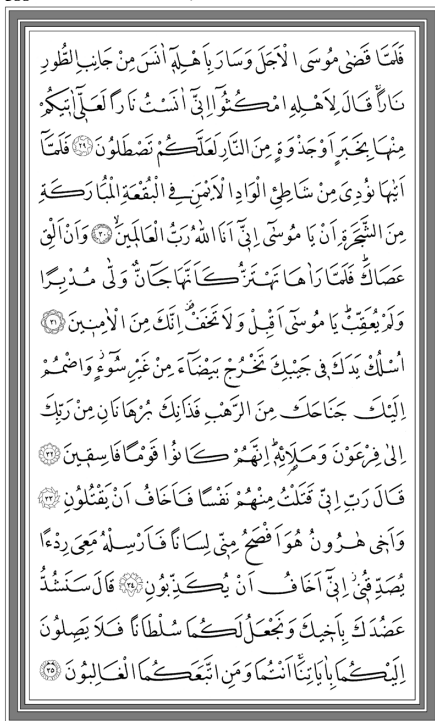 فَلَمَّا قَضٰى مُوسَى الْاَجَلَ وَسَارَ بِاَهْلِه۪ٓ اٰنَسَ مِنْ جَانِبِ الطُّورِ
نَارًاۚ قَالَ لِاَهْلِهِ امْكُثُٓوا اِنّ۪ٓي اٰنَسْتُ نَارًا لَعَلّ۪ٓي اٰت۪يكُمْ
مِنْهَا بِخَبَرٍ اَوْ جَذْوَةٍ مِنَ النَّارِ لَعَلَّكُمْ تَصْطَلُونَ ﴿٢٩﴾ فَلَمَّٓا
اَتٰيهَا نُودِيَ مِنْ شَاطِئِ الْوَادِ الْاَيْمَنِ فِي الْبُقْعَةِ الْمُبَارَكَةِ
مِنَ الشَّجَرَةِ اَنْ يَا مُوسٰٓى اِنّ۪ٓي اَنَا اللّٰهُ رَبُّ الْعَالَم۪ينَۙ ﴿٣٠﴾ وَاَنْ اَلْقِ
عَصَاكَۜ فَلَمَّا رَاٰهَا تَهْتَزُّ كَاَنَّهَا جَٓانٌّ وَلّٰى مُدْبِرًا
وَلَمْ يُعَقِّبْۜ يَا مُوسٰٓى اَقْبِلْ وَلَا تَخَفْ۠ اِنَّكَ مِنَ الْاٰمِن۪ينَ ﴿٣١﴾
اُسْلُكْ يَدَكَ ف۪ي جَيْبِكَ تَخْرُجْ بَيْضَٓاءَ مِنْ غَيْرِ سُٓوءٍۘ وَاضْمُمْ
اِلَيْكَ جَنَاحَكَ مِنَ الرَّهْبِ فَذَانِكَ بُرْهَانَانِ مِنْ رَبِّكَ
اِلٰى فِرْعَوْنَ وَمَلَا۬ئِه۪ۜ اِنَّهُمْ كَانُوا قَوْمًا فَاسِق۪ينَ ﴿٣٢﴾
قَالَ رَبِّ اِنّ۪ي قَتَلْتُ مِنْهُمْ نَفْسًا فَاَخَافُ اَنْ يَقْتُلُونِ ﴿٣٣﴾
وَاَخ۪ي هٰرُونُ هُوَ اَفْصَحُ مِنّ۪ي لِسَانًا فَاَرْسِلْهُ مَعِيَ رِدْءًا
يُصَدِّقُن۪يۘ اِنّ۪ٓي اَخَافُ اَنْ يُكَذِّبُونِ ﴿٣٤﴾ قَالَ سَنَشُدُّ
عَضُدَكَ بِاَخ۪يكَ وَنَجْعَلُ لَكُمَا سُلْطَانًا فَلَا يَصِلُونَ
اِلَيْكُمَا بِاٰيَاتِنَاۚ اَنْتُمَا وَمَنِ اتَّبَعَكُمَا الْغَالِبُونَ ﴿٣٥﴾